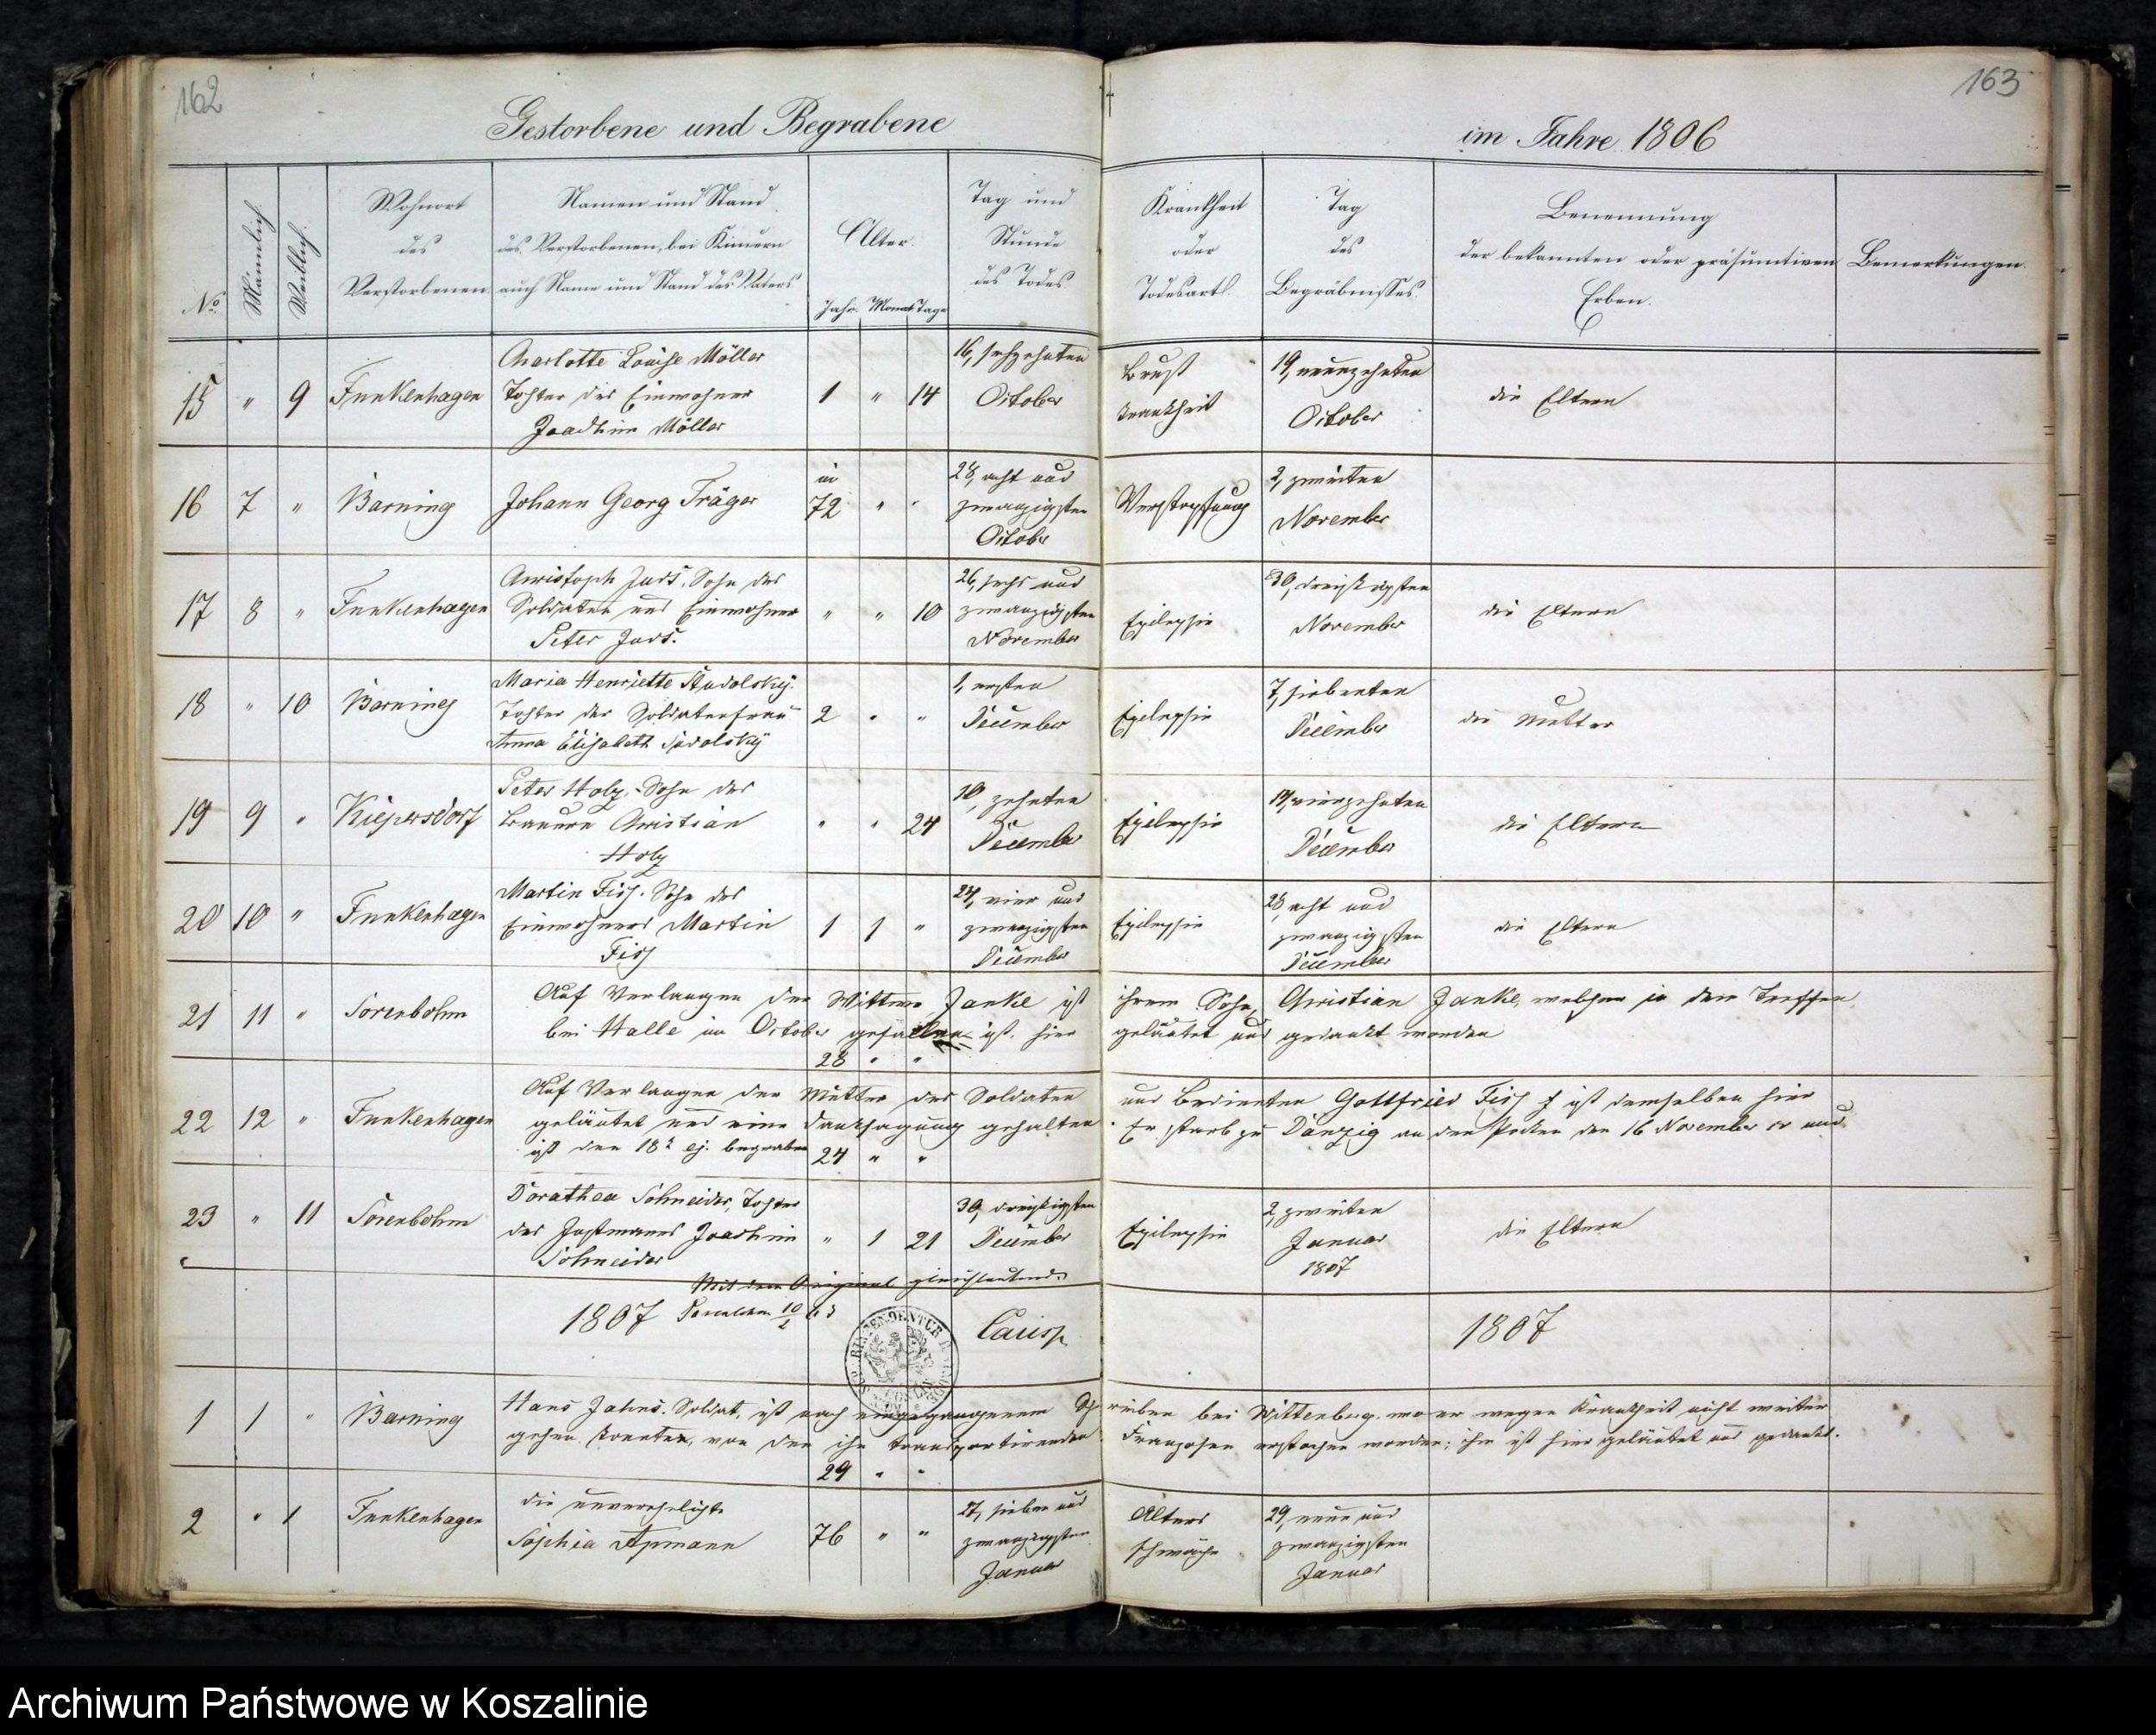 162
163
Gestorbene und Begrabene
im Jahre 1806
No.
Männlich.
Weiblich.
Wohnort
des
Verstorbenen
Namen und Stand
des Verstorbenen, bei Kindern
auch Name und Stand des Vaters
Alter.
Jahr. Monat Tage
Tag und
Stunde
des Todes
Krankheit
oder
Todesart.
Tag
des
Begräbnisses.
Benennung
der bekannten oder präsumtiven
Erben.
Bemerkungen.
15 " 9 Funkenhagen
Charlotte Louise Möller
Tochter des Einwohner
Joachim Möller
1 " 14
16, sechzehnten
October
Brust
krankheit
19, neunzehnten
October
die Eltern
16 7 " Barning
Johann Georg Träger
in
72 " "
28, acht und
zwanzigsten
October
Verstopfung
2, zweiten
November
17 8 " Funkenhagen
Christoph Jads. Sohn des
Soldaten und Einwohner
Peter Jads.
" " 10
26, sechs und
zwanzigsten
November
Epilepsie
30, dreißigsten
November
die Eltern
18 " 10 Barning
Maria Henriette
Tochter der Soldatenfrau
Anna Elisabeth
2 " "
1, ersten
December
Epilepsie
7, siebenten
December
die Mutter
19 9 " Kiepersdorf
Peter Holz. Sohn des
Bauern Christian
Holz
" " 24
10, zehnten
December
Epilepsie
14, vierzehnten
December
die Eltern
20 10 " Funkenhagen
Martin Fisch. Sohn des
Einwohners Martin
Fisch
1 1 "
24, vier und
zwanzigsten
December
Epilepsie
28, acht und
zwanzigsten
December
die Eltern
21 11 " Sorenbohm
Auf Verlangen der Wittwe Janke ist ihrem Sohn, Christian Janke, welcher in dem Treffen
bei Halle im October gefallen ist, hier geläutet und gedankt worden
28 " "
22 12 " Funkenhagen
Auf Verlangen der Mutter des Soldaten und Bedienten Gottfried Fisch ist demselben hier
geläutet und eine Danksagung gehalten. Er starb zu Danzig an den Pocken den 16 November cr und
ist den 18t ej. begraben
24 " "
23 " 11 Sorenbohm
Dorathea Schneider, Tochter
des Instmanns Joachim
Schneider
" 1 21
30, dreißigsten
December
Epilepsie
2, zweiten
Januar
1807
die Eltern
Mit dem Original gleichlautend.
1807
1807
1 1 " Barning
Hans Jahns. Soldat, ist nach eingegangenem Schreiben bei Wittenberg, wo er wegen Krankheit nicht weiter
gehen konnte, von den ihn transportirenden Franzosen erstochen worden; ihm ist hier geläutet und gedankt.
29 " "
2 " 1 Funkenhagen
die unverehelichte
Sophia Apmann
76 " "
27, sieben und
zwanzigsten
Januar
Alters
schwäche
29, neun und
zwanzigsten
Januar
Archiwum Państwowe w Koszalinie